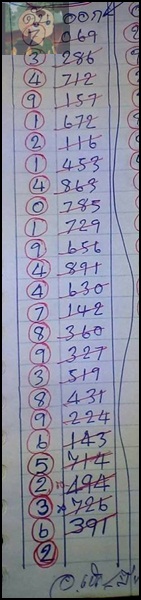 069
3 286
4 712
9 157
1 672
2 116
1 453
4 863
0 785
1 729
9 656
4 891
4 630
7 142
8 360
9 327
3 519
8 431
9 224
6 143
5 714
2 494
3 726
6 391
2